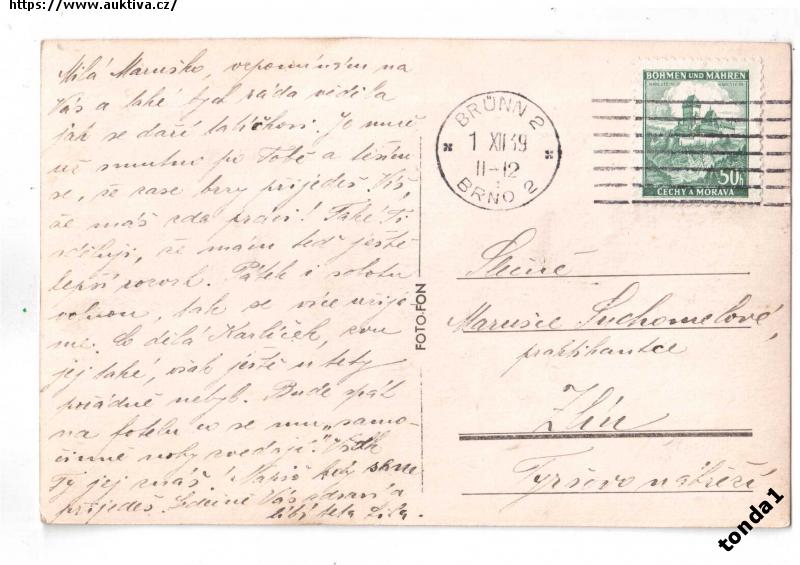 https://www.auktiva.cz/
Milá Maruško, vzpomínám na
Vás a také bych ráda věděla
jak se daří tatíčkovi. Je mně
už smutno po Tobě a těším
se, že zase brzy přijedeš. Vím,
že máš zde práci! Také Ti
sděluji, že mám teď ještě
lepší rozvrh. Pátek i sobotu
volnou, tak se více užije
me. Co dělá Karlíček, zvu
jej také, však ještě u tety
pořádně nebyl. Bude spát
na fotelu co se mu „samo-
činně nohy zvedají". Však
Ty jej znáš! Napiš kdy sem
přijedeš. Srdečně Vás zdraví a
líbí teta Lída.
FOTO-FON
BRÜNN 2
1 XII 39
11-12
BRNO 2
BÖHMEN UND MÄHREN
50h
ČECHY A MORAVA
Slečně
Marušce Suchomelové,
praktikantce
Zlín
Tyršovo nábřeží
tonda1